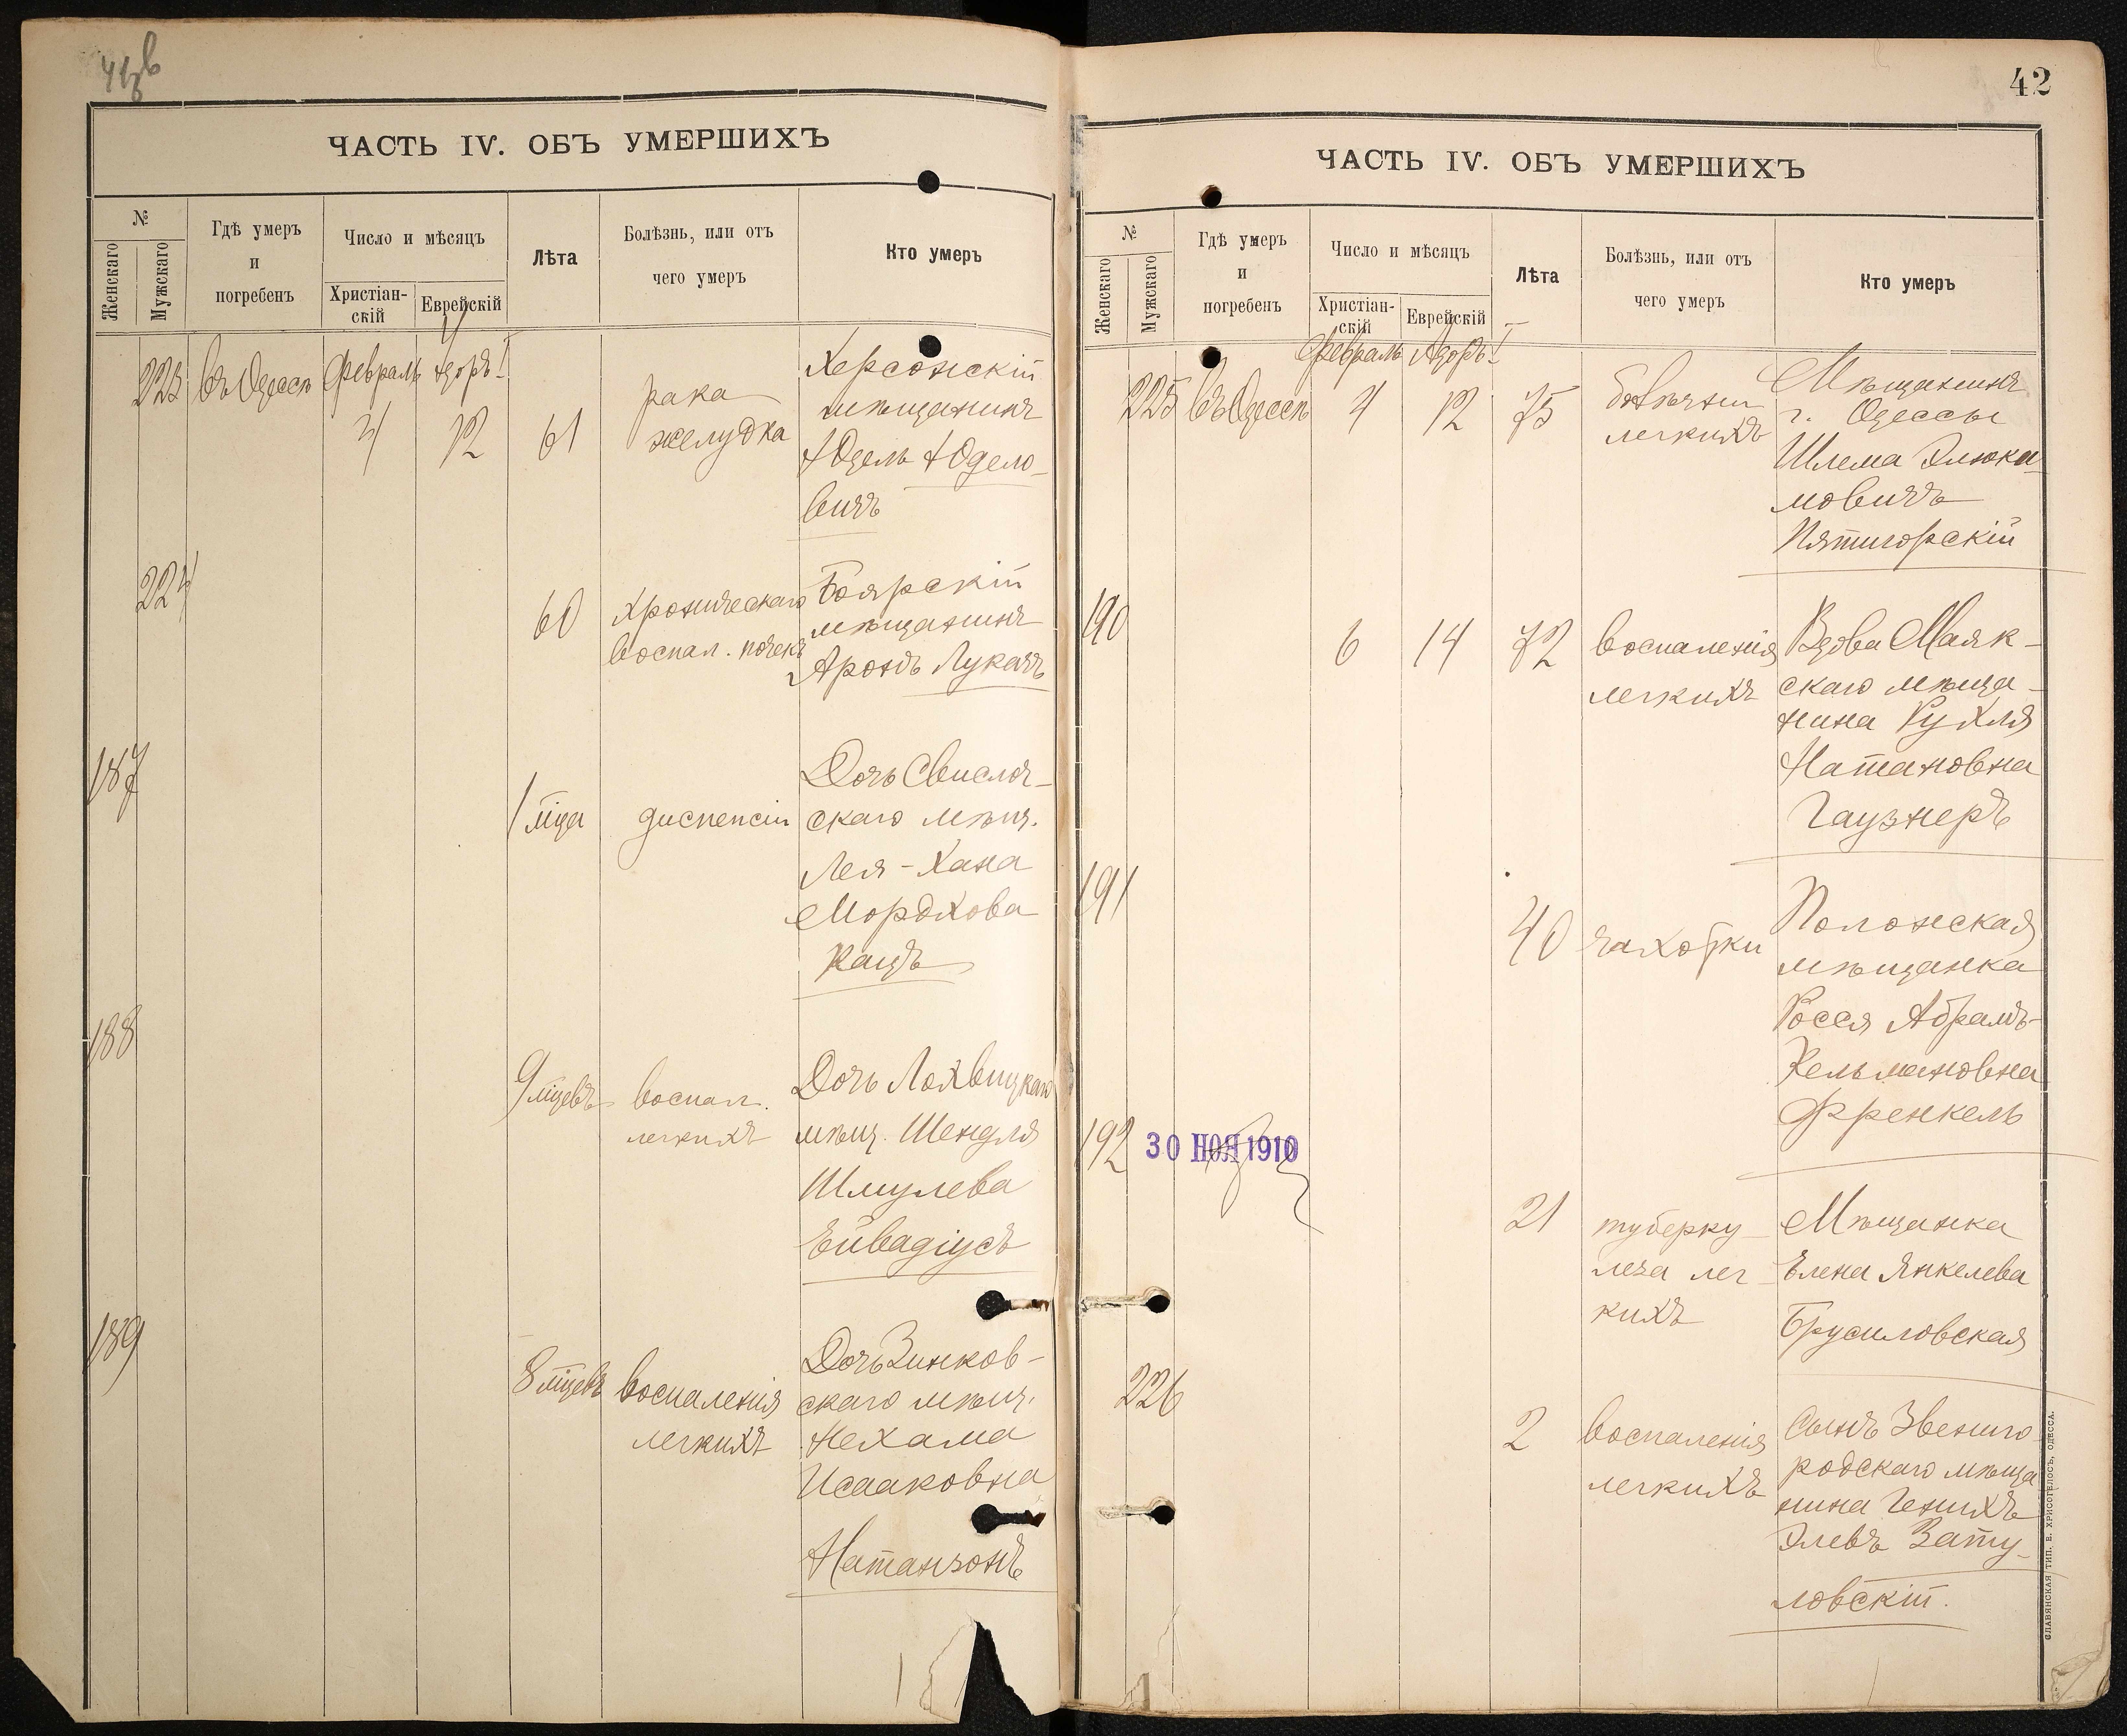 ЧАСТЬ IV. ОБЪ УМЕРШИХЪ
№
Женскаго
Мужскаго
Гдѣ умеръ
и
погребенъ
Число и мѣсяцъ
Христіан-
скій
Еврейскій
Лѣта
Болѣзнь, или отъ
чего умеръ
Кто умеръ
223 въ Одессѣ Февраль Адоръ I
4 12 61
рака
желудка
Херсонскій
мѣщанинъ
Юдель Юдело-
вичъ
224
60
хроническаго
воспал. почекъ
Боярскій
мѣщанинъ
Аронъ Лукачъ
187
1 мца
диспепсіи
Дочь Свислоч-
скаго мѣщ.
Лея-Хана
Мордкова
Кацъ
188
9 мцевъ
воспал.
легкихъ
Дочь Лохвицкаго
мѣщ. Шендля
Шмулева
Ейвадіусъ
189
8 мцевъ
воспаленія
легкихъ
Дочь Зинков-
скаго мѣщ.
Нехама
Исааковна
Натанзонъ
42
ЧАСТЬ IV. ОБЪ УМЕРШИХЪ
№
Женскаго
Мужскаго
Гдѣ умеръ
и
погребенъ
Число и мѣсяцъ
Христіан-
скій
Еврейскій
Лѣта
Болѣзнь, или отъ
чего умеръ
Кто умеръ
Февраль Адоръ I
225 въ Одессѣ 4 12 75
легкихъ
Мѣщанинъ
г. Одессы
Шлема Элюка-
мовичъ
Пятигорскій
190
6 14 72
воспаленія
легкихъ
Вдова Маяк-
скаго мѣща-
нина Рухля
Натановна
Гаузнеръ
191
40
чахотки
Полонская
мѣщанка
Росся Абрамъ-
Кельмановна
Френкель
192
30 НОЯ 1910
21
туберку-
леза лег-
кихъ
Мѣщанка
Елена Янкелева
Брусиловская
226
2
воспаленія
легкихъ
Сынъ Звениго-
родскаго мѣща
нина Генихъ
Элевъ Зату-
ловскій.
СЛАВЯНСКАЯ ТИП. Е. ХРИСОГЕЛОСЪ, ОДЕССА.